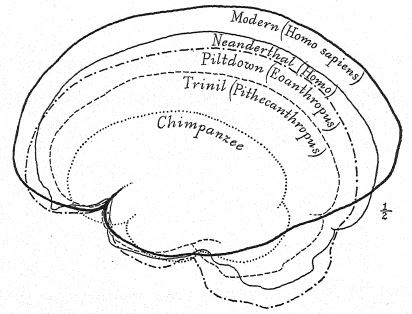 Modern (Homo sapiens)
Neanderthal (Homo)
Piltdown (Eoanthropus)
Trinil (Pithecanthropus)
Chimpanzee
1/2